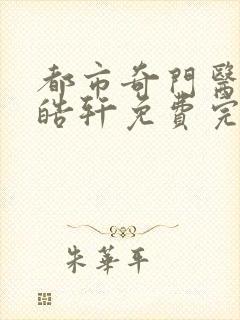 都市奇門醫
皓軒免費完
朱華平